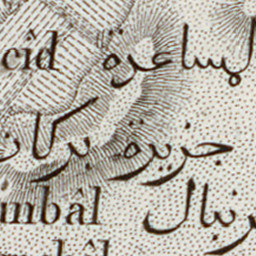 cîd لمساعدة
جزيرة بركان
mbâl نبال